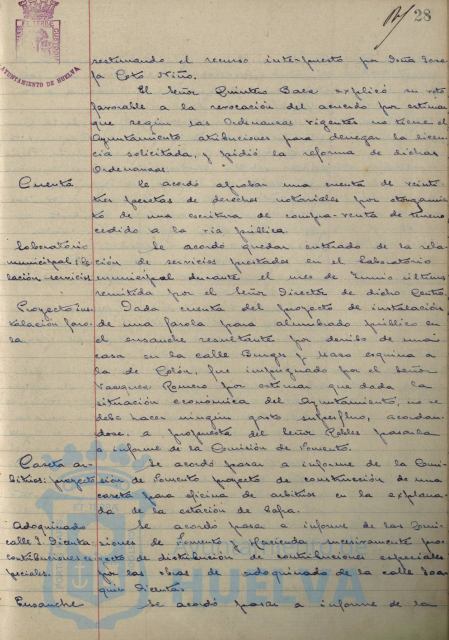 28
AYUNTAMIENTO DE HUELVA
HUELVA
recurso interpuesto por Doña Jose
fa Coto Niño.
El Señor Quintero Baca explicó su voto
favorable a la revocación del acuerdo por estimar
que según las Ordenanzas vigentes no tiene el
Ayuntamiento atribuciones para denegar la licen
cia solicitada, y pidió la reforma de dichas
Ordenanzas.
Cuenta
Se acordó aprobar una cuenta de veinte
tres pesetas de derechos notariales por otorgamien
to de una escritura de compra-venta de terreno
cedido a la vía pública.
Laboratorio
municipal: Re
lación servicios
Se acordó quedar enterado de la rela
ción de servicios prestados en el laboratorio
municipal durante el mes de Junio último
remitida por el Señor Director de dicho Centro.
Proyecto ins
talación faro
la
Dada cuenta del proyecto de instalación
de una farola para alumbrado público en
el ensanche resultante por derribo de una
casa en la calle Burgos y Mazo esquina a
la de Colón, fue impugnado por el Señor
Vazquez Romero por estimar que dada la
situación económica del Ayuntamiento, no se
debe hacer ningún gasto superfluo, acordan
dose, a propuesta del Señor Robles pasarla
a informe de la Comisión de Fomento.
Caseta ar-
bitrios: proyecto
Se acordó pasar a informe de la Comi
sión de Fomento proyecto de construcción de una
caseta para oficina de arbitrios en la explana
da de la estación de Zafra.
Adoquinado
calle J. Dicenta
contribuciones es
peciales.
Se acordó pasar a informe de las Comi
siones de Fomento y Hacienda sucesivamente pro
yecto de distribución de contribuciones especiales
por las obras de adoquinado de la calle Joa
quín Dicenta.
Ensanche
Se acordó pasar a informe de la